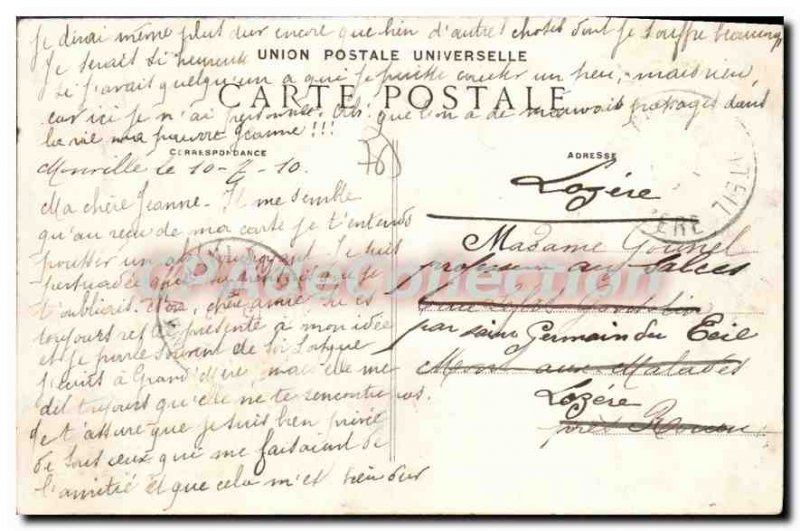 je dirai même plus dur encore que bien d'autres choses dont je souffre beaucoup
Je serais si heureuse
UNION POSTALE UNIVERSELLE
si j'avais quelqu'un a qui je puisse causer un peu, mais rien,
CARTE POSTALE
car ici je n'ai personne. Oh! que l'on a de mauvais passages dans
la vie ma pauvre Jeanne!!!
CORRESPONDANCE
ADRESSE
le 10-7-10.
Ma chère Jeanne. Il me semble
qu'au reçu de ma carte je t'entends
pousser un Je suis
persuadée que
t'oubliais. chère amie tu es
toujours représentée à mon idée
et je parle souvent de toi lorsque
j'écris à Grand'Mère, mais elle me
dit toujours qu'elle ne te rencontre pas.
Je t'assure que je suis bien privée
de tous ceux qui me faisaient de
l'amitié et que cela m'est bien dur
Lozère
Madame
professeur aux Salces
par saint Germain du Teil
Mont aux Malades
Lozère
près Rouen
CPAcollection